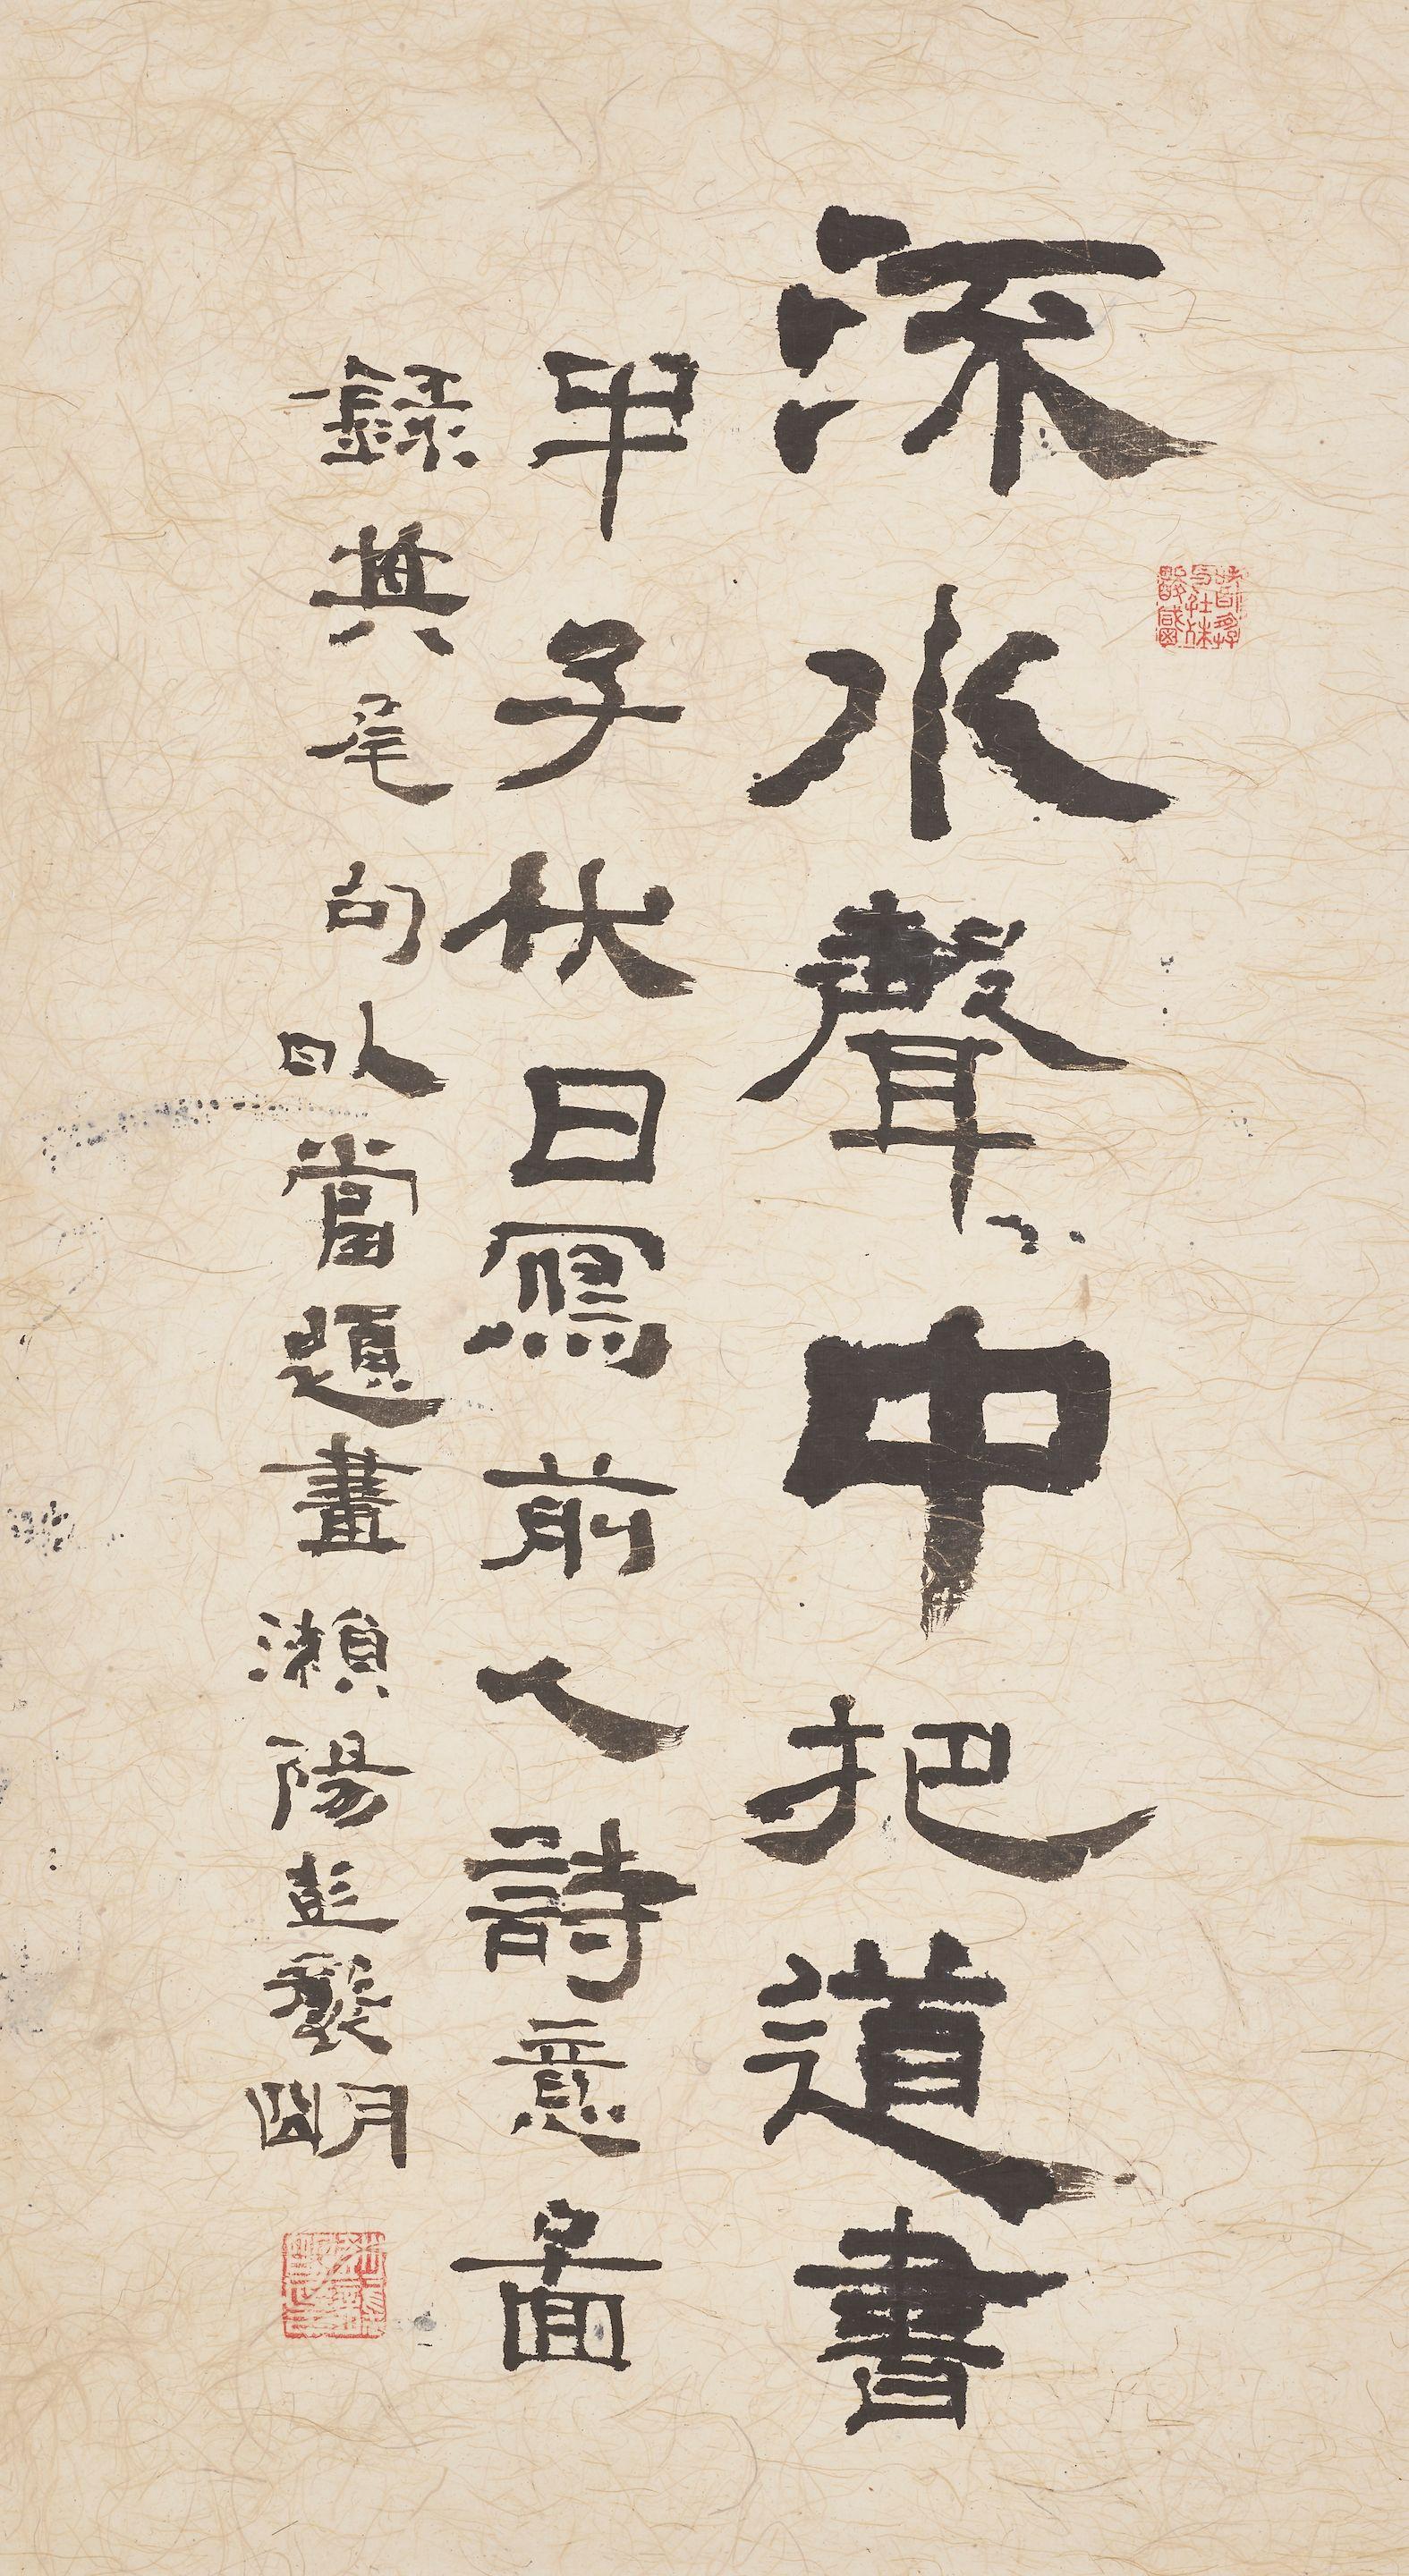 流水聲中把道書
甲子伏日寫前人詩意畐
録其尾句以當題畫瀨陽彭襲明